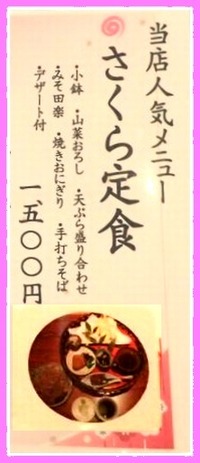 当店人気メニュー
さくら定食
・小鉢 ・山菜おろし ・天ぷら盛り合わせ
・みそ田楽 ・焼きおにぎり ・手打ちそば
・デザート付
一、五〇〇円